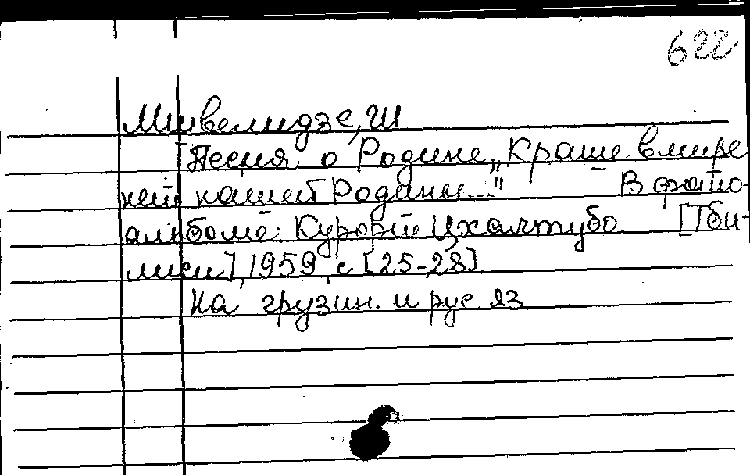 622
Мшвелидзе, Ш
Песня о Родине „Краше в мире
нет нашей Родины..." В фото-
альбоме: Курорт Цхалтубо [Тби-
лиси], 1959, с [25-28]
На грузин. и рус яз